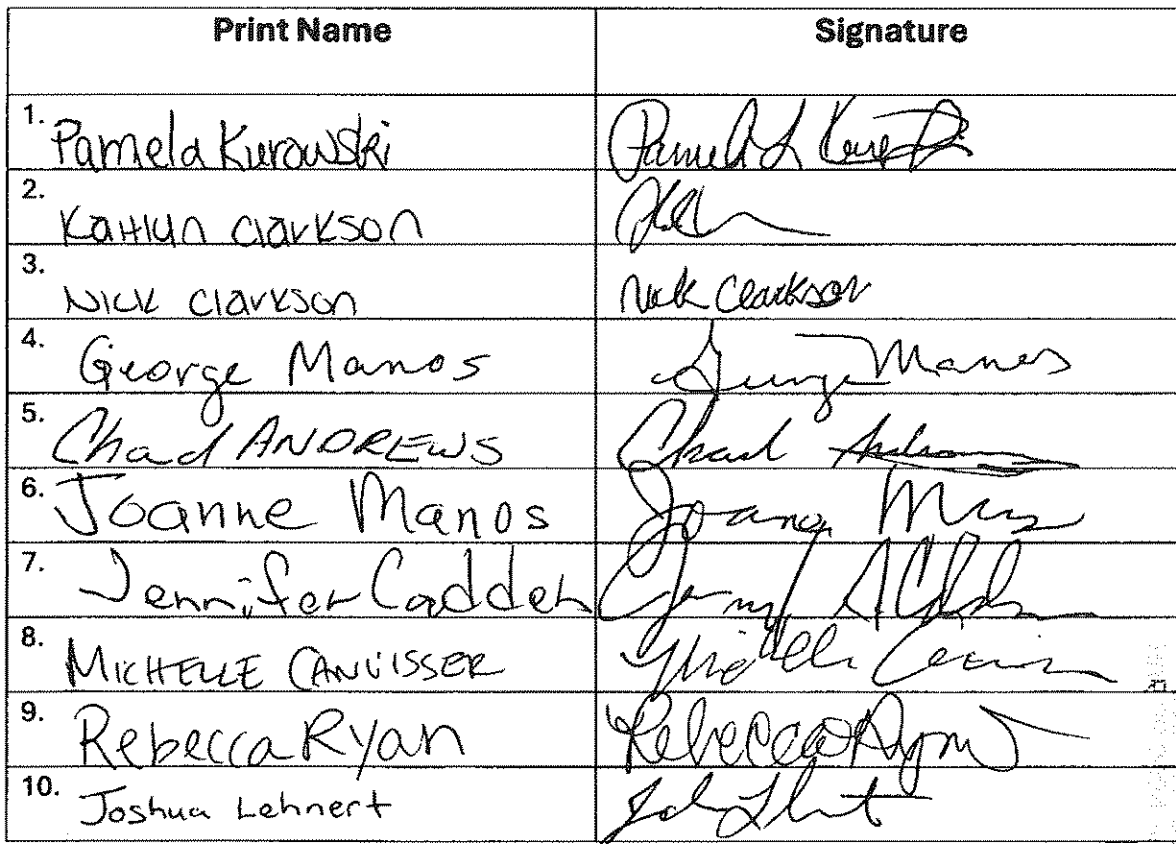 Print Name Signature
1. Pamela Kurowski Pamela L Kurowski
2. Kaitlyn Clarkson
3. Nick Clarkson Nick Clarkson
4. George Manos George Manos
5. Chad ANDREWS Chad Andrews
6. Joanne Manos Joanne
7. Jennifer Cadden
8. MICHELLE CANVISSER Michelle
9. Rebecca Ryan Rebecca Ryan
10. Joshua Lehnert